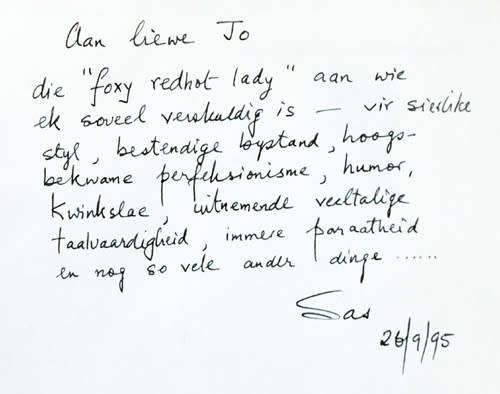 Aan liewe Jo
die "foxy redhot lady" aan wie
ek soveel verskuldig is — vir sierlike
styl, bestendige bystand, hoogs-
bekwame perfeksionisme, humor,
kwinkslae, uitnemende veeltalige
taalvaardigheid, immere paraatheid
en nog so vele ander dinge ......
Sas
26/9/95